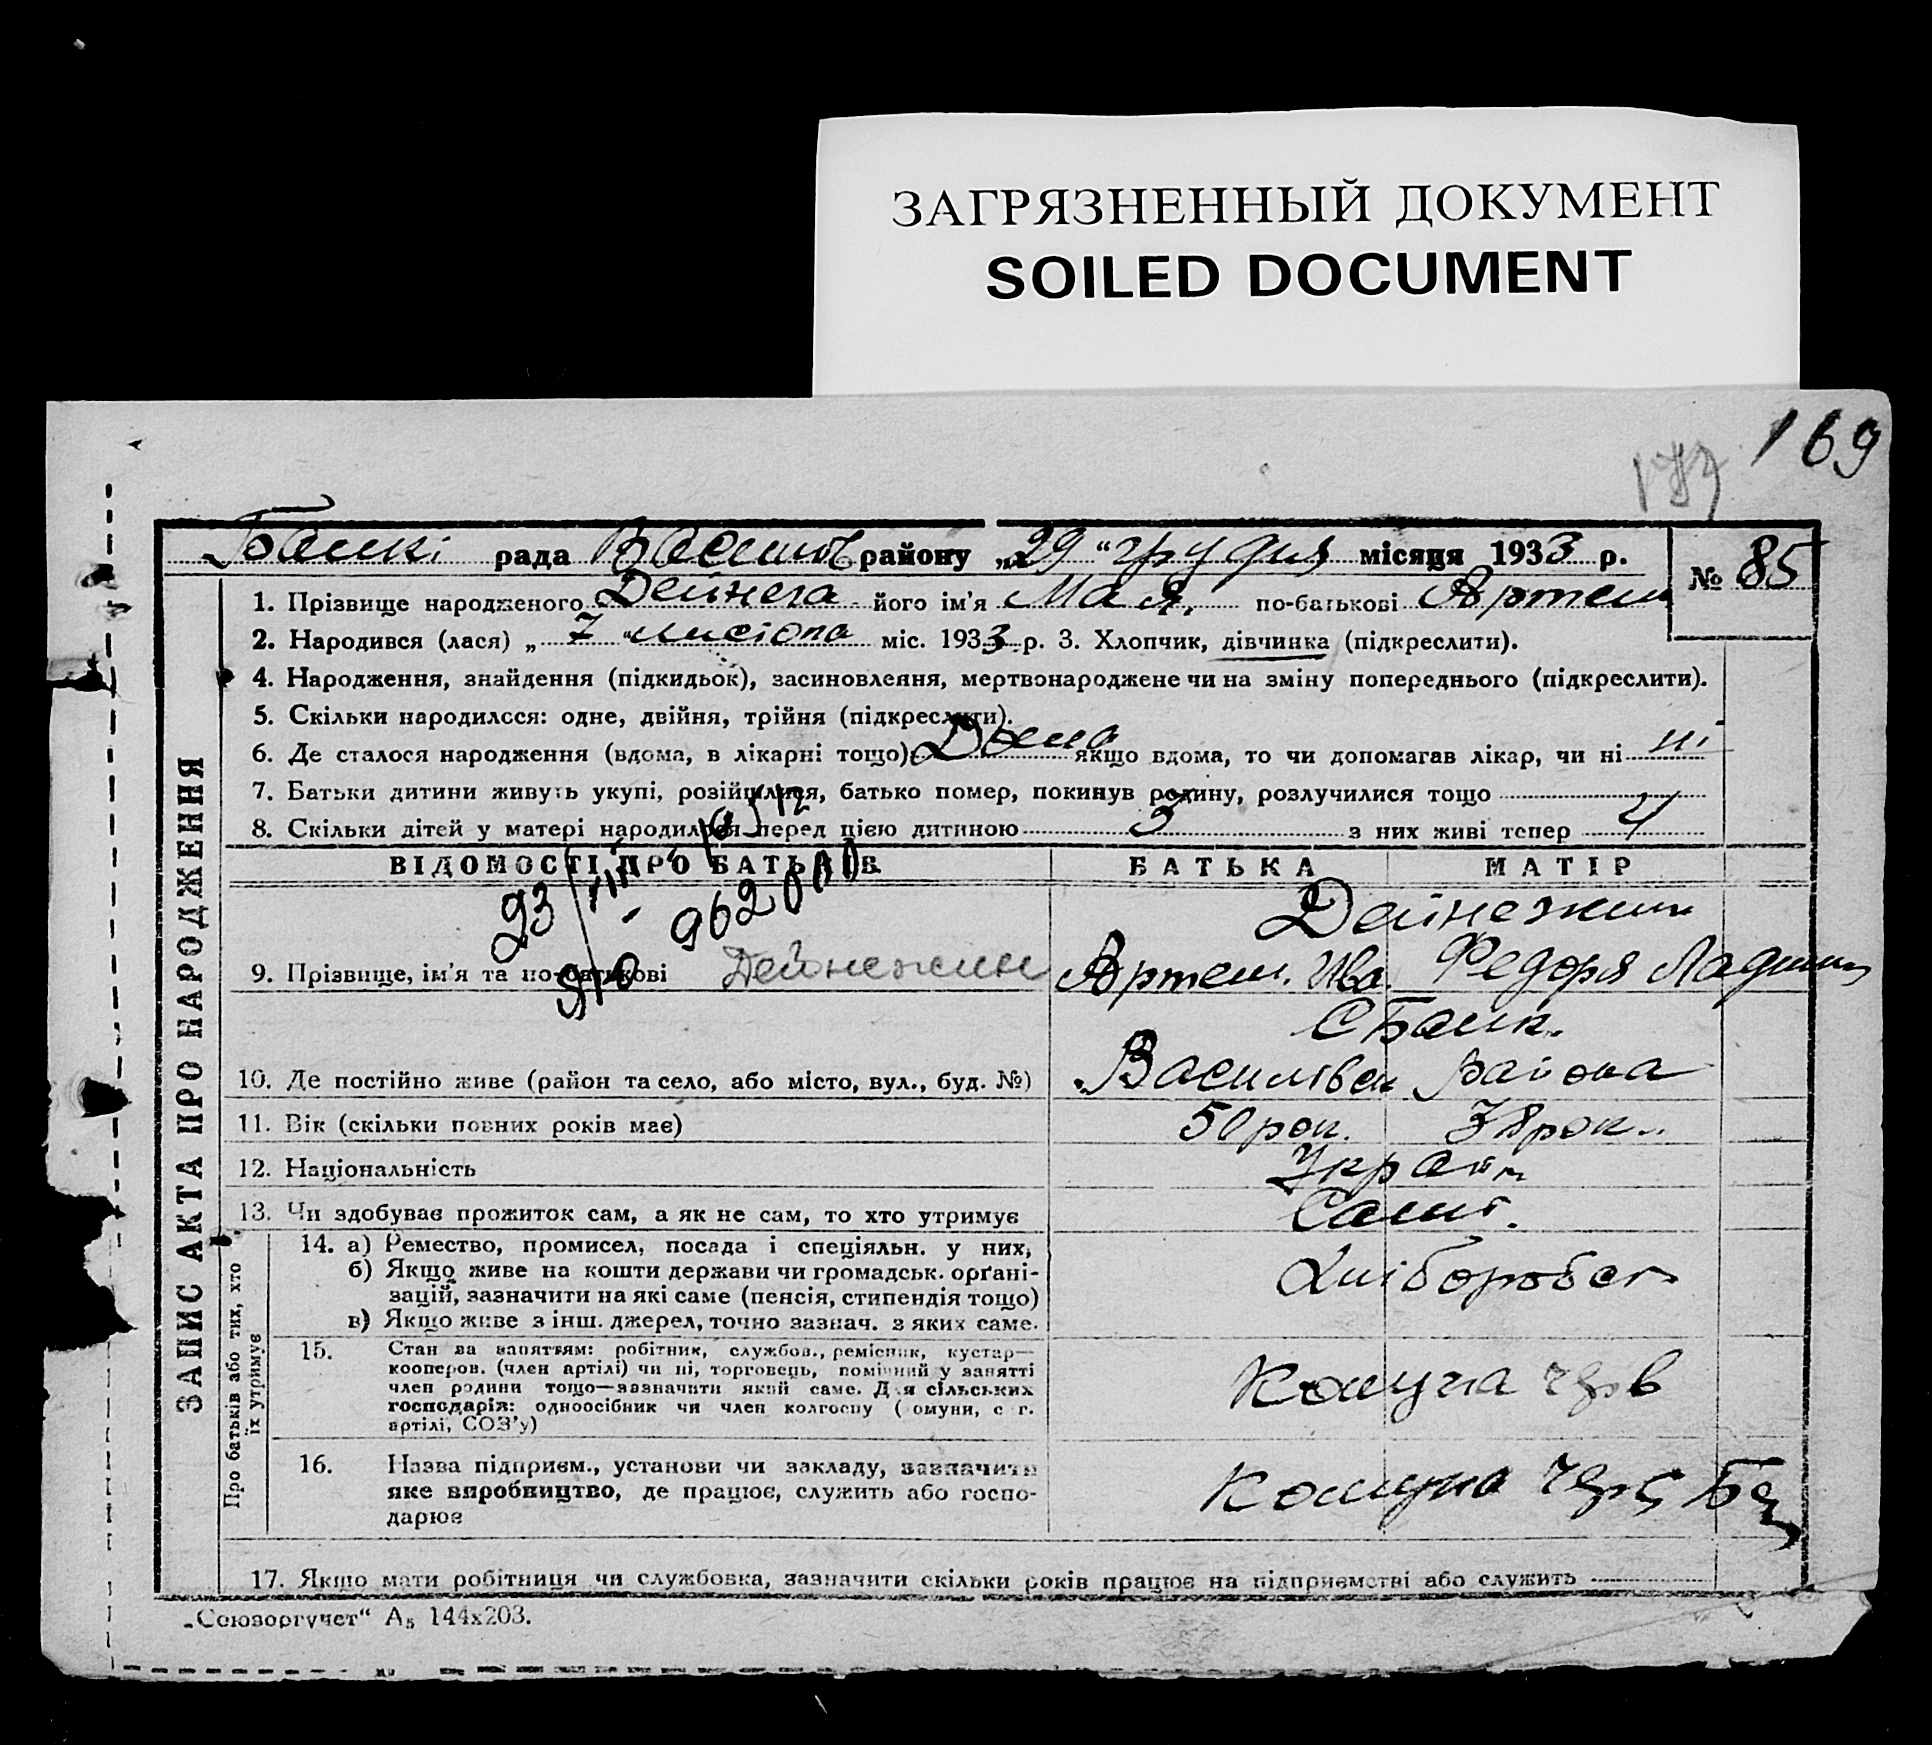 ЗАГРЯЗНЕННЫЙ ДОКУМЕНТ
SOILED DOCUMENT
169
ЗАПИС АКТА ПРО НАРОДЖЕННЯ
рада району „29“ грудня місяця 1933 р.
№ 85
1. Прізвище народженого Дейнега його ім'я Мая, по-батькові Артем
2. Народився (лася) „7“ листопа міс. 1933 р. 3. Хлопчик, дівчинка (підкреслити).
4. Народження, знайдення (підкидьок), засиновлення, мертвонароджене чи на зміну попереднього (підкреслити).
5. Скільки народилося: одне, двійня, трійня (підкреслити).
6. Де сталося народження (вдома, в лікарні тощо) Дома якщо вдома, то чи допомагав лікар, чи ні ні
7. Батьки дитини живуть укупі, розійшлися, батько помер, покинув родину, розлучилися тощо
8. Скільки дітей у матері народилося перед цією дитиною 5 з них живі тепер 4
ВІДОМОСТІ ПРО БАТЬКІВ БАТЬКА МАТІР
Дейнежин
9. Прізвище, ім'я та по-батькові Дейнежин Артем. Ива. Федоря
10. Де постійно живе (район та село, або місто, вул., буд. №) Василівск района
11. Вік (скільки повних років має) 50 рок. 38 рок.
12. Національність Украін
13. Чи здобуває прожиток сам, а як не сам, то хто утримує Самі.
Про батьків або тих, хто їх утримує
14. а) Ремество, промисел, посада і спеціяльн. у них,
б) Якщо живе на кошти держави чи громадськ. орґані-
зацій, зазначити на які саме (пенсія, стипендія тощо)
в) Якщо живе з інш. джерел, точно зазнач. з яких саме.
Хліборобст
15. Стан за заняттям: робітник, службов., ремісник, кустар—
кооперов. (член артілі) чи ні, торговець, помічний у занятті
член родини тощо—зазначити який саме. Для сільських
господарів: одноосібник чи член колгоспу (омуни, с г.
артілі, СОЗ'у)
Комуна черв
16. Назва підприєм., установи чи закладу, зазначити
яке виробництво, де працює, служить або госпо-
дарює
Комуна
17. Якщо мати робітниця чи службовка, зазначити скільки років працює на підприємстві або служить
„Союзоргучет“ А5 144х203.